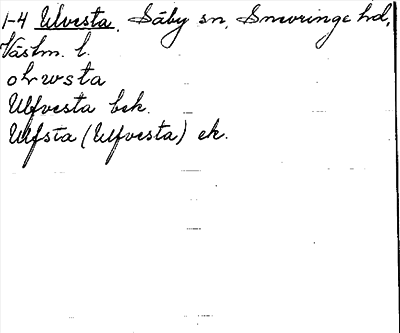 1-4 Ulvesta. Säby sn, Snevringe hd,
Västm. l.
Ulfvesta bek.
Ulfsta (Ulfvesta) ek.